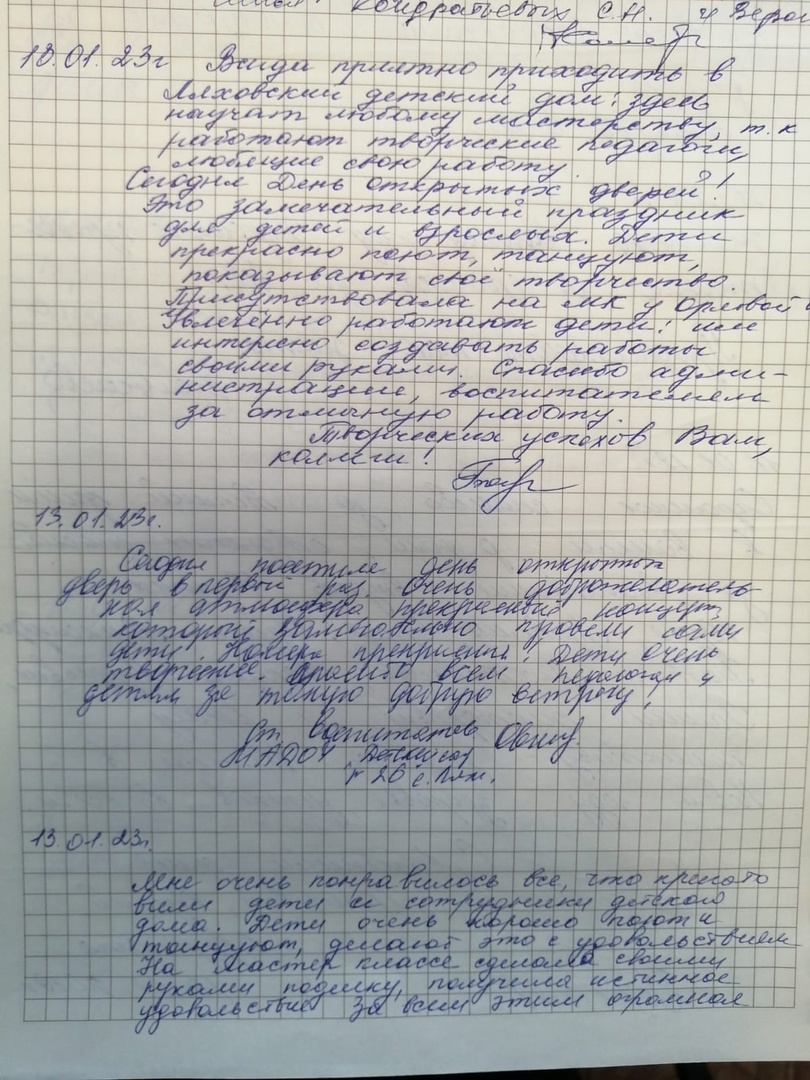 Кондратьевых С.Н. и
13.01.23г Всегда приятно приходить в
Ляховский детский дом: здесь
научат любому мастерству, т.к
работают творческие педагоги,
любящие свою работу.
Сегодня День открытых дверей!
Это замечательный праздник
для детей и взрослых. Дети
прекрасно поют, танцуют,
показывают своё творчество.
Присутствовала на МК у Орловой
Увлечённо работают дети: им
интересно создавать работы
своими руками. Спасибо адми-
нистрации, воспитателям
за отличную работу.
Творческих успехов Вам,
коллеги!
13.01.23г.
Сегодня посетила день открытых
дверь в первый раз. Очень доброжелатель
ная атмосфера прекрасный концерт,
который замечательно провели сами
дети. Номера прекрасны! Дети очень
творческие. Спасибо всем педагогам и
детям за такую добрую встречу!
Ст. воспитатель
МАДОУ Детский сад
№ 26 с. Лях.
13.01.23г.
Мне очень понравилось все, что пригото
вили дети и сотрудники детского
дома. Дети очень хорошо поют и
танцуют, делают это с удовольствием
На мастер классе сделала своими
руками поделку, получила истинное
удовольствие За всем этим огромная